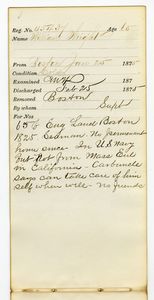 Reg. No. 45437 Age 60
Name Wright
From Tewks Jan 25 1875
Condition
Examined
Discharged Feb 25 1875
Removed Boston
By whom Supt
For Nos
65 b Eng Land Boston
1825 Seaman - No permanent
home since - In US Navy
but not from Mass End
in California - Carbuncle
says can take care of him
self when well - no friends